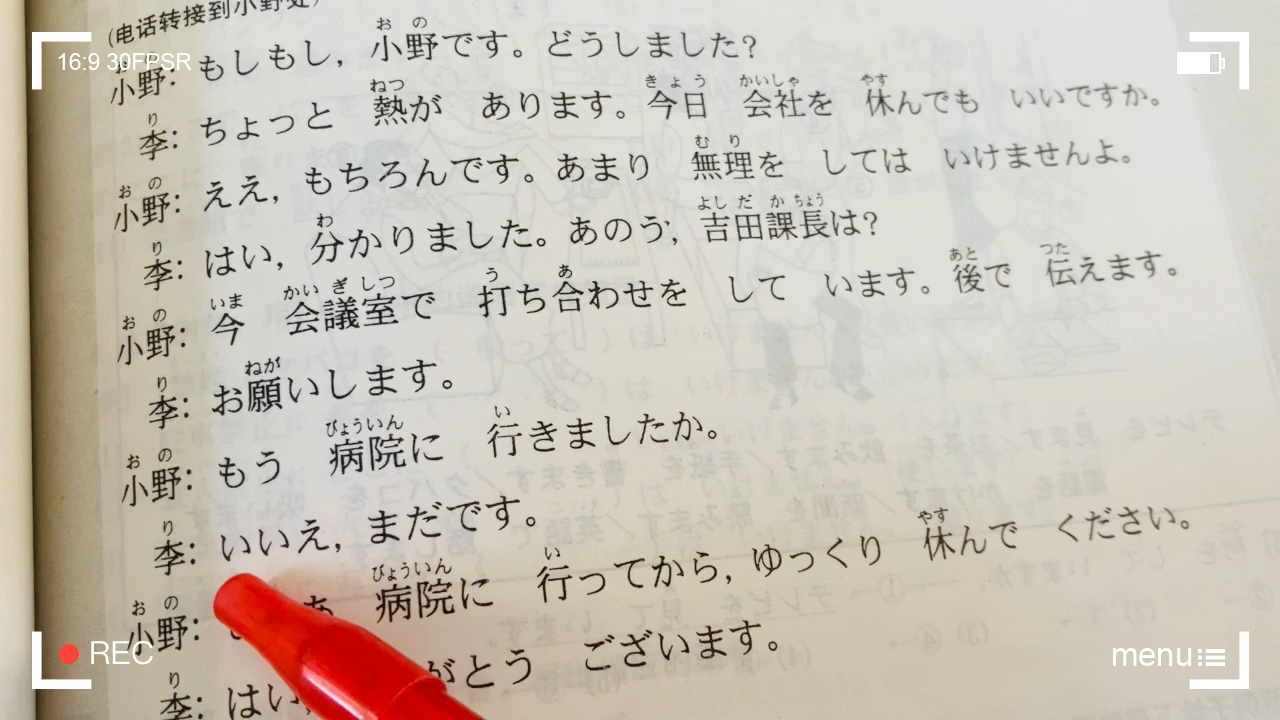 (电话转接到小野处)
16:9 30FPSR
小野: もしもし, 小野です。どうしました?
李: ちょっと 熱が あります。今日 会社を 休んでも いいですか。
小野: ええ, もちろんです。あまり 無理を しては いけませんよ。
李: はい, 分かりました。あのう, 吉田課長は?
小野: 今 会議室で 打ち合わせを して います。後で 伝えます。
李: お願いします。
小野: もう 病院に 行きましたか。
李: いいえ, まだです。
小野: 病院に 行ってから, ゆっくり 休んで ください。
李: はい, がとう ございます。
REC
menu